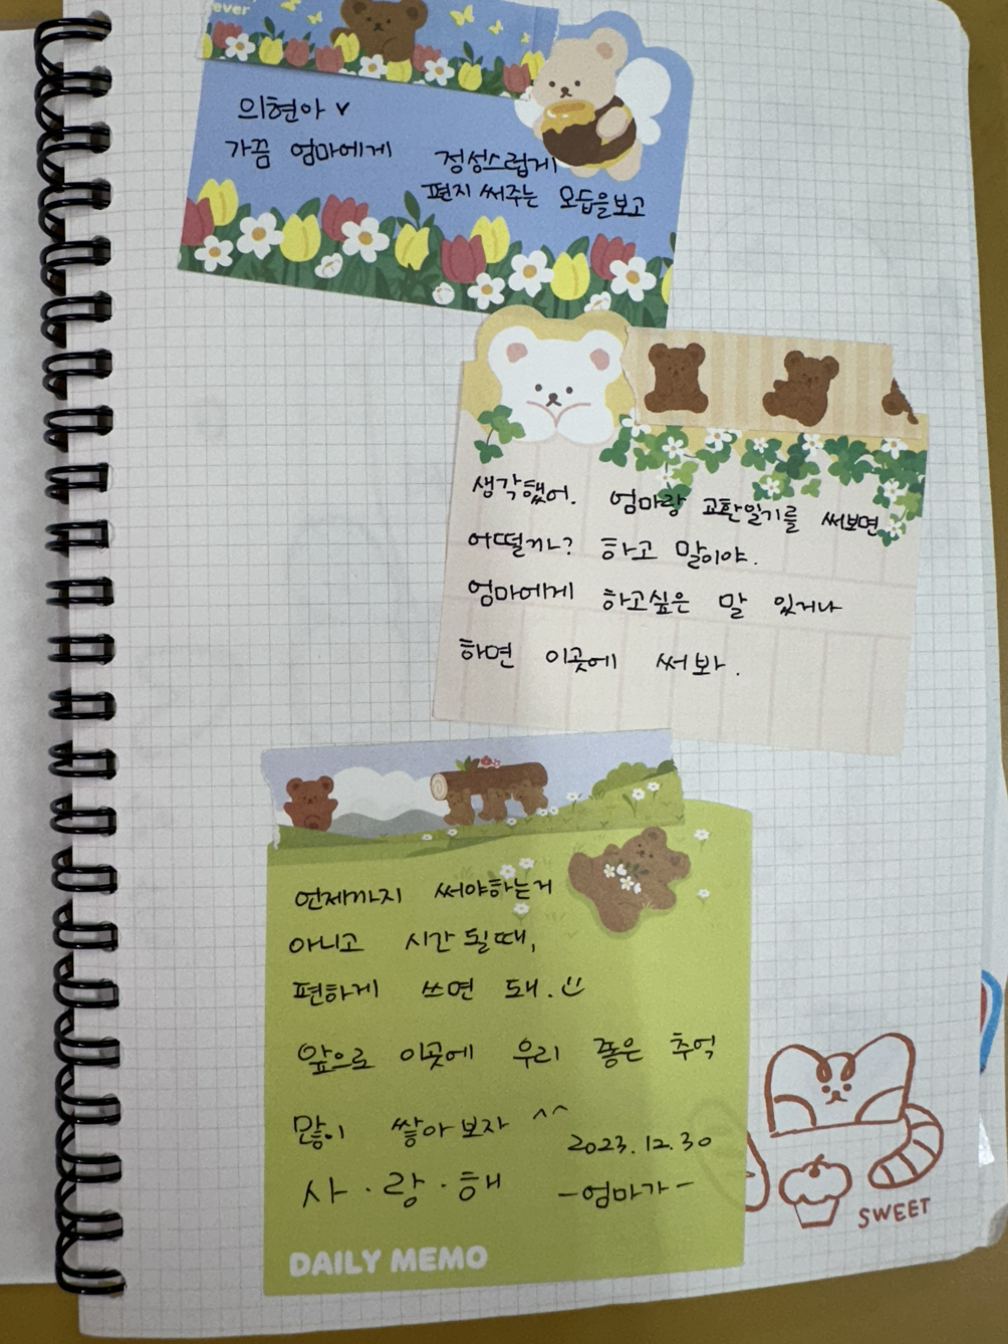 ever
의현아 ♥
가끔 엄마에게 정성스럽게
편지 써주는 모습을보고
생각했어. 엄마랑 교환일기를 써보면
어떨까? 하고 말이야.
엄마에게 하고싶은 말 있거나
하면 이곳에 써 봐.
언제까지 써야하는거
아니고 시간 될때,
편하게 쓰면 돼.
앞으로 이곳에 우리 좋은 추억
많이 쌓아보자 ^^
2023. 12. 30
사·랑·해 -엄마가-
DAILY MEMO
SWEET